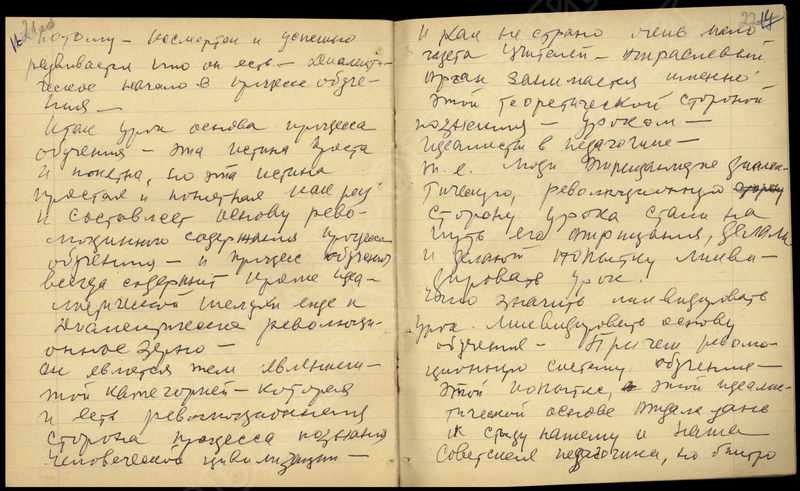 21
потому — бессмертен и успешно
развивается что он есть — диалекти-
ческое начало в процессе обуче-
ния —
Итак урок основа процесса
обучения — эта истина проста
и понятна, но эта истина
простая и понятная как раз
и составляет основу рево-
люционного содержания процесса
обучения — и процесс обучения
всегда содержит кроме идеа-
листической шелухи еще и
диалектическое революци-
онное зерно —
он является тем явлением —
той категорией — которая
и есть революционная
сторона процесса познания
человеческой цивилизации —
22 14
И как не странно очень мало
газета Учителей — отраслевый
орган занимается именно
этой теоретической стороной
познания — уроком —
идеалисты в педагогике —
т. е. люди отрицающие диалек-
тическую, революционную
сторону урока стали на
путь его отрицания, делали
и делают попытку ликви-
дировать урок.
Что значить ликвидировать
урок. Ликвидировать основу
обучения — Причем револю-
ционную систему обучения —
этой попытке, этой идеалис-
тической основе отдала дань
к стыду нашему и наша
Советская педагогика, но быстро